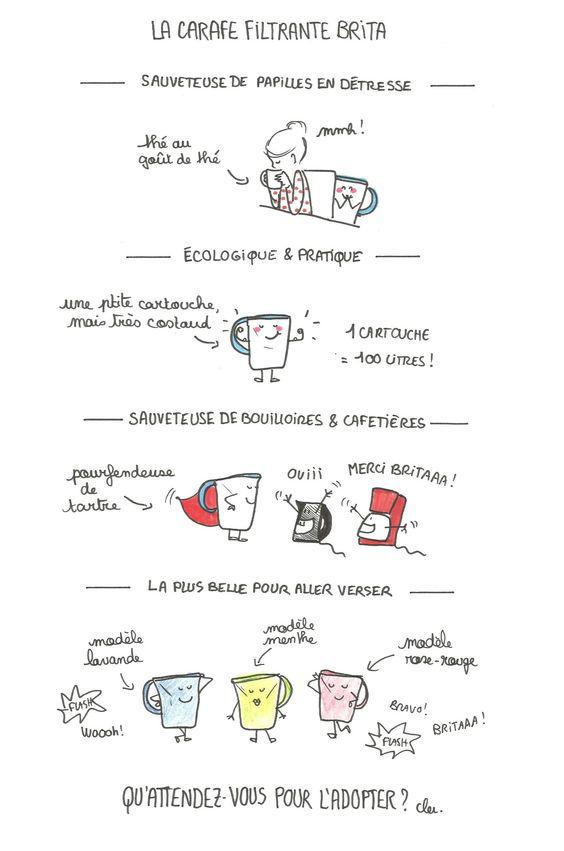 LA CARAFE FILTRANTE BRITA
SAUVETEUSE DE PAPILLES EN DÉTRESSE
thé au
goût de thé
mmh!
ÉCOLOGIQUE & PRATIQUE
une ptite cartouche,
mais très costaud
1 CARTOUCHE
= 100 LITRES!
SAUVETEUSE DE BOUILLOIRES & CAFETIÈRES
pourfendeuse
de
tartre
OUIII
MERCI BRITAAA!
LA PLUS BELLE POUR ALLER VERSER
modèle
lavande
modèle
menthe
modèle
rose-rouge
FLASH
Woooh!
BRAVO!
BRITAAA!
FLASH
QU'ATTENDEZ-VOUS POUR L'ADOPTER?